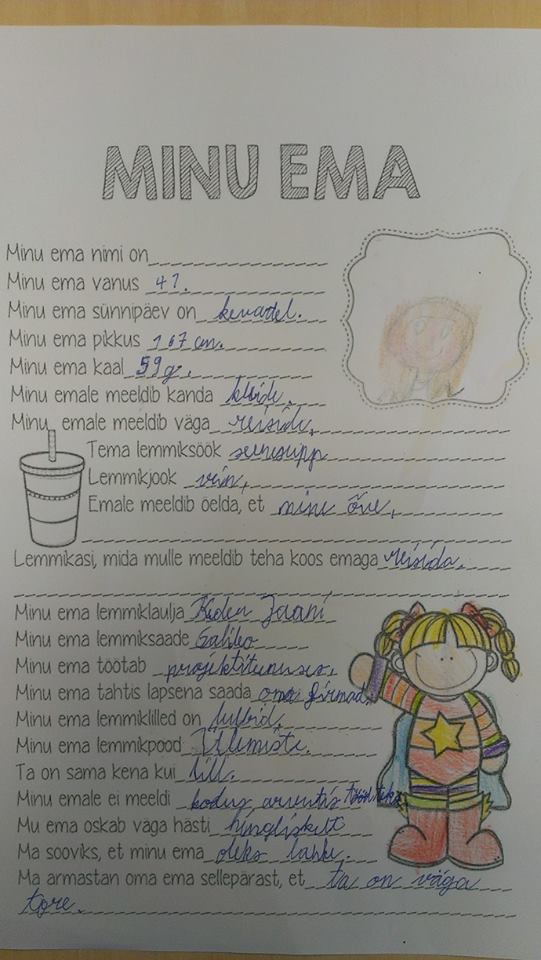 MINU EMA
Minu ema nimi on
Minu ema vanus 41.
Minu ema sünnipäev on kevadel.
Minu ema pikkus 167 cm.
Minu ema kaal 59g.
Minu emale meeldib kanda kleide.
Minu emale meeldib väga reisida.
Tema lemmiksöök seenesupp
Lemmikjook vein,
Emale meeldib öelda, et mine õve,
Lemmikasi, mida mulle meeldib teha koos emaga reisida.
Minu ema lemmiklaulja Jaani
Minu ema lemmiksaade Galileo
Minu ema töötab
Minu ema tahtis lapsena saada oma firmad,
Minu ema lemmiklilled on tulbid.
Minu ema lemmikpood Ülemiste.
Ta on sama kena kui lill.
Minu emale ei meeldi kodus arvutis
Mu ema oskab väga hästi
Ma sooviks, et minu ema oleks lahke.
Ma armastan oma ema sellepärast, et ta on väga
tore.